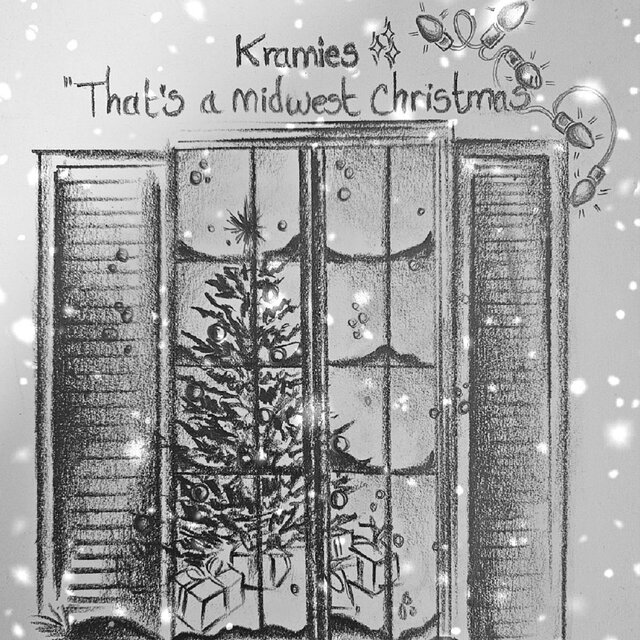 Kramies
"That's a midwest Christmas